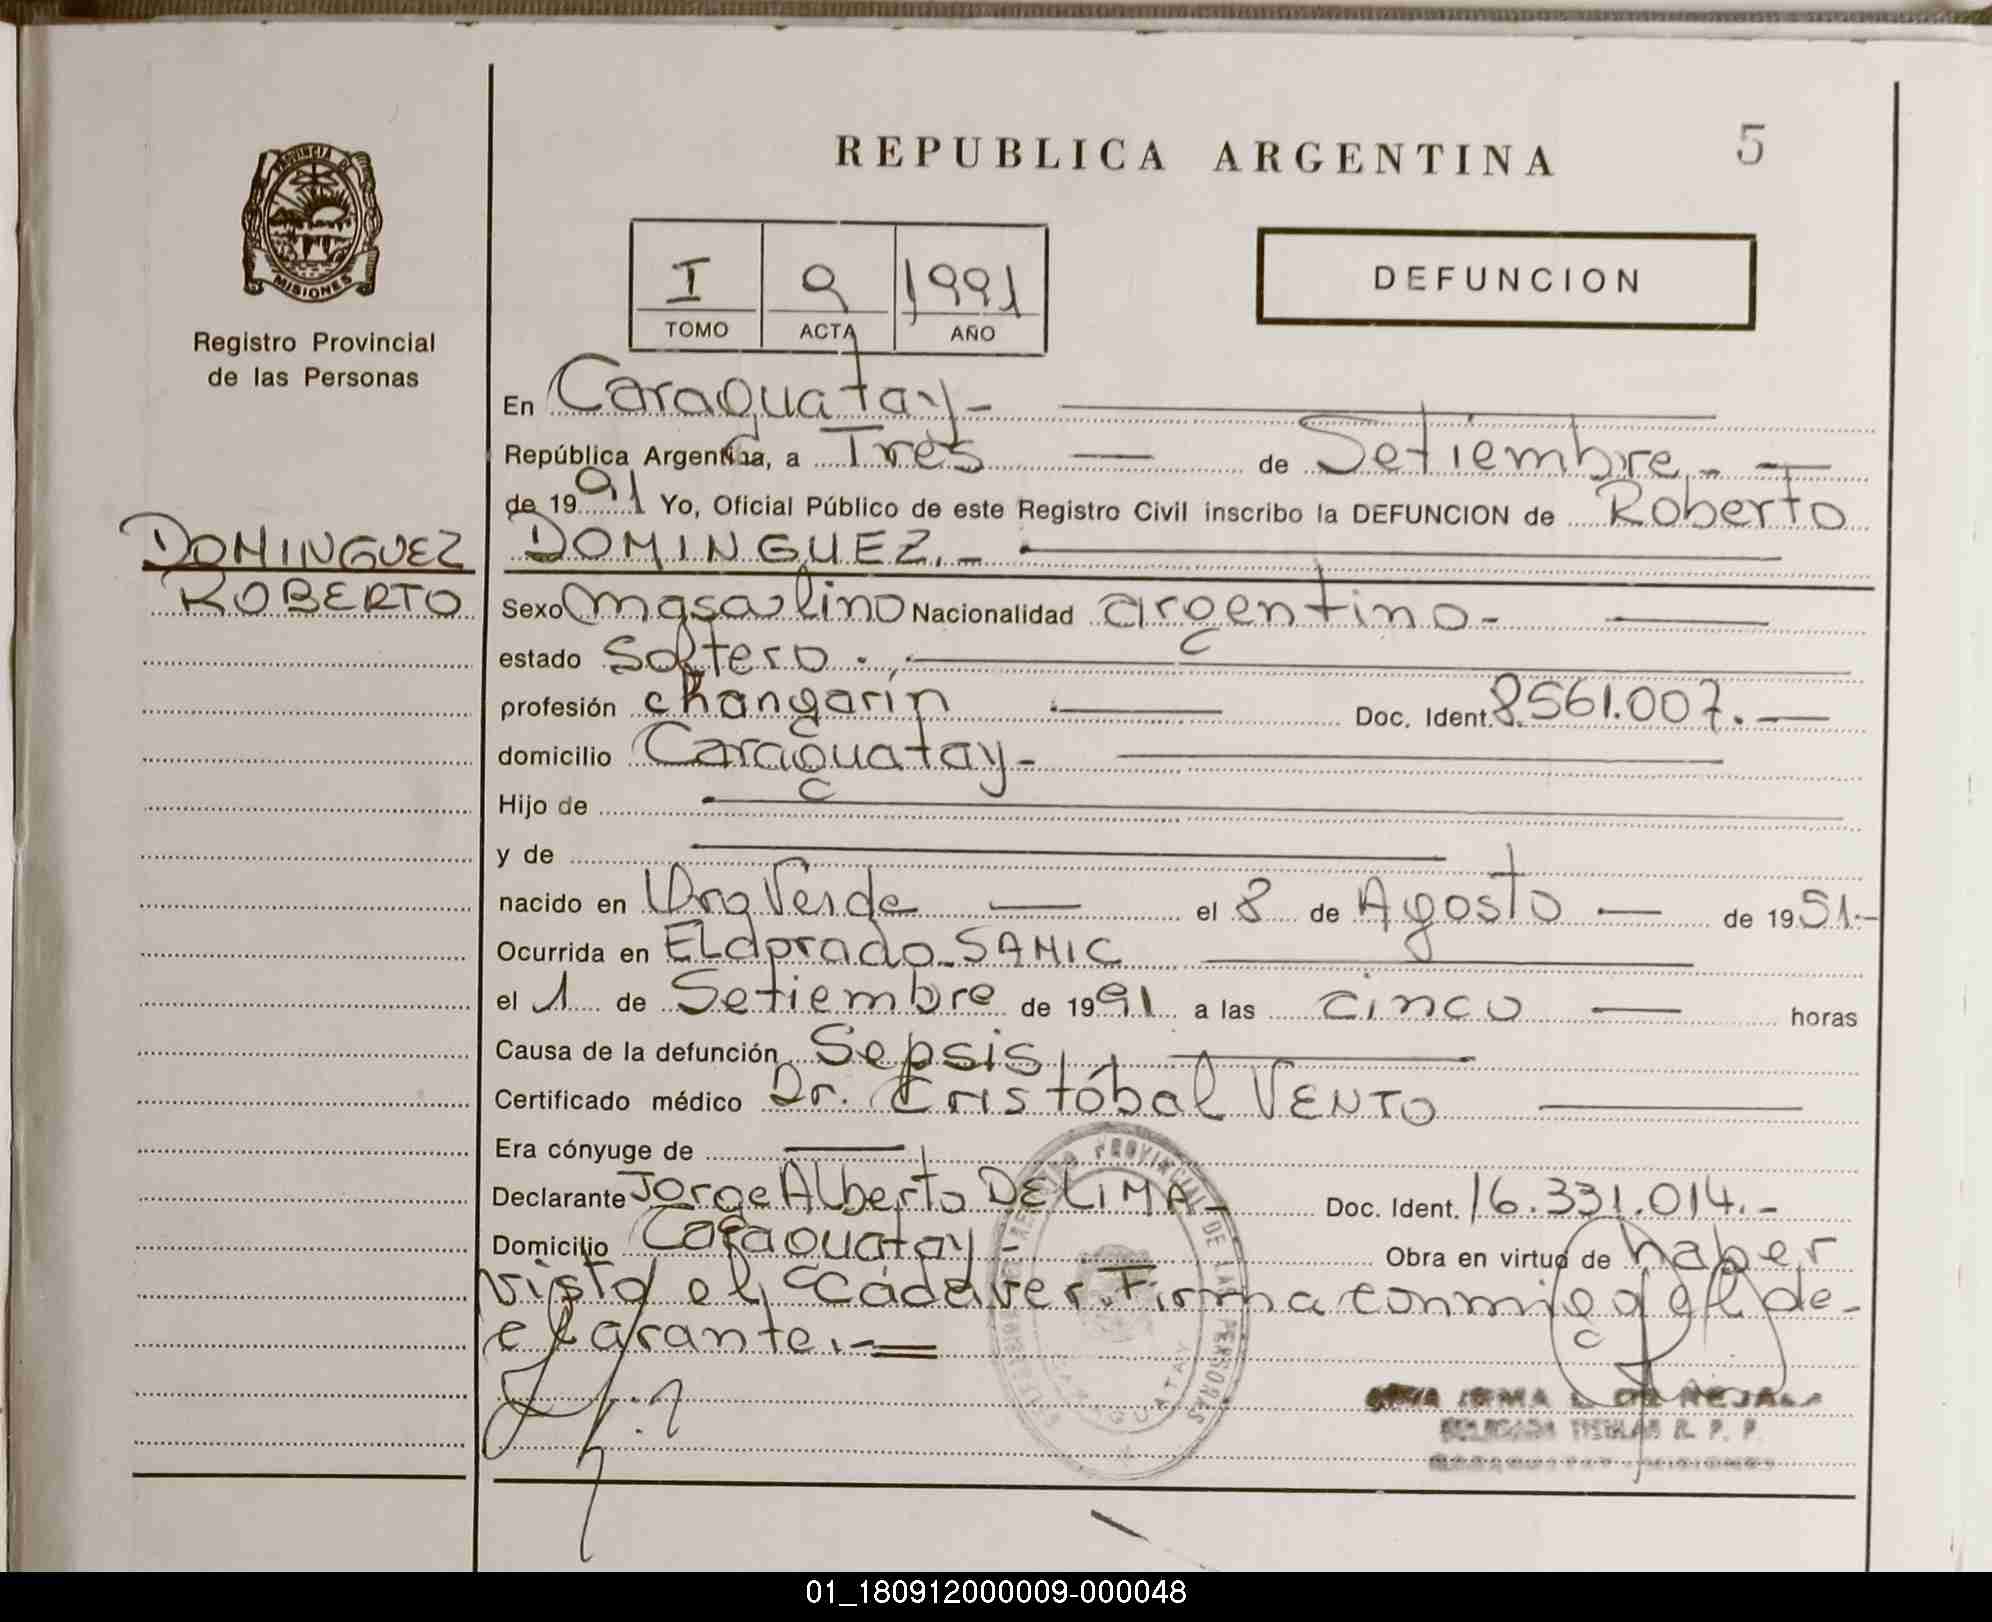 REPUBLICA ARGENTINA
5
PROVINCIA DE
MISIONES
Registro Provincial
de las Personas
I 9 1991
TOMO ACTA AÑO
DEFUNCION
En Caraguatay-
República Argentina, a Tres de Setiembre-
de 1991 Yo, Oficial Público de este Registro Civil inscribo la DEFUNCION de Roberto
DOMINGUEZ.-
DOMINGUEZ
ROBERTO
Sexo masculino Nacionalidad argentino-
estado Soltero.,
profesión changarin Doc. Ident. 8.561.007.-
domicilio Caraguatay-
Hijo de
y de
nacido en Verde el 8 de Agosto de 1951.-
Ocurrida en ELdorado-SAMIC
el 1 de Setiembre de 1991 a las cinco horas
Causa de la defunción Sepsis
Certificado médico Dr. Cristóbal VENTO
Era cónyuge de
Declarante Jorge Alberto DELIMA- Doc. Ident. 16.331.014.-
Domicilio Caraguatay- Obra en virtud de haber
visto el Cádaver. Firma conmigo el de-
clarante.-
PROVINCIAL DE LAS PERSONAS
CARAGUATAY
TITULAR R. P. P.
01_180912000009-000048